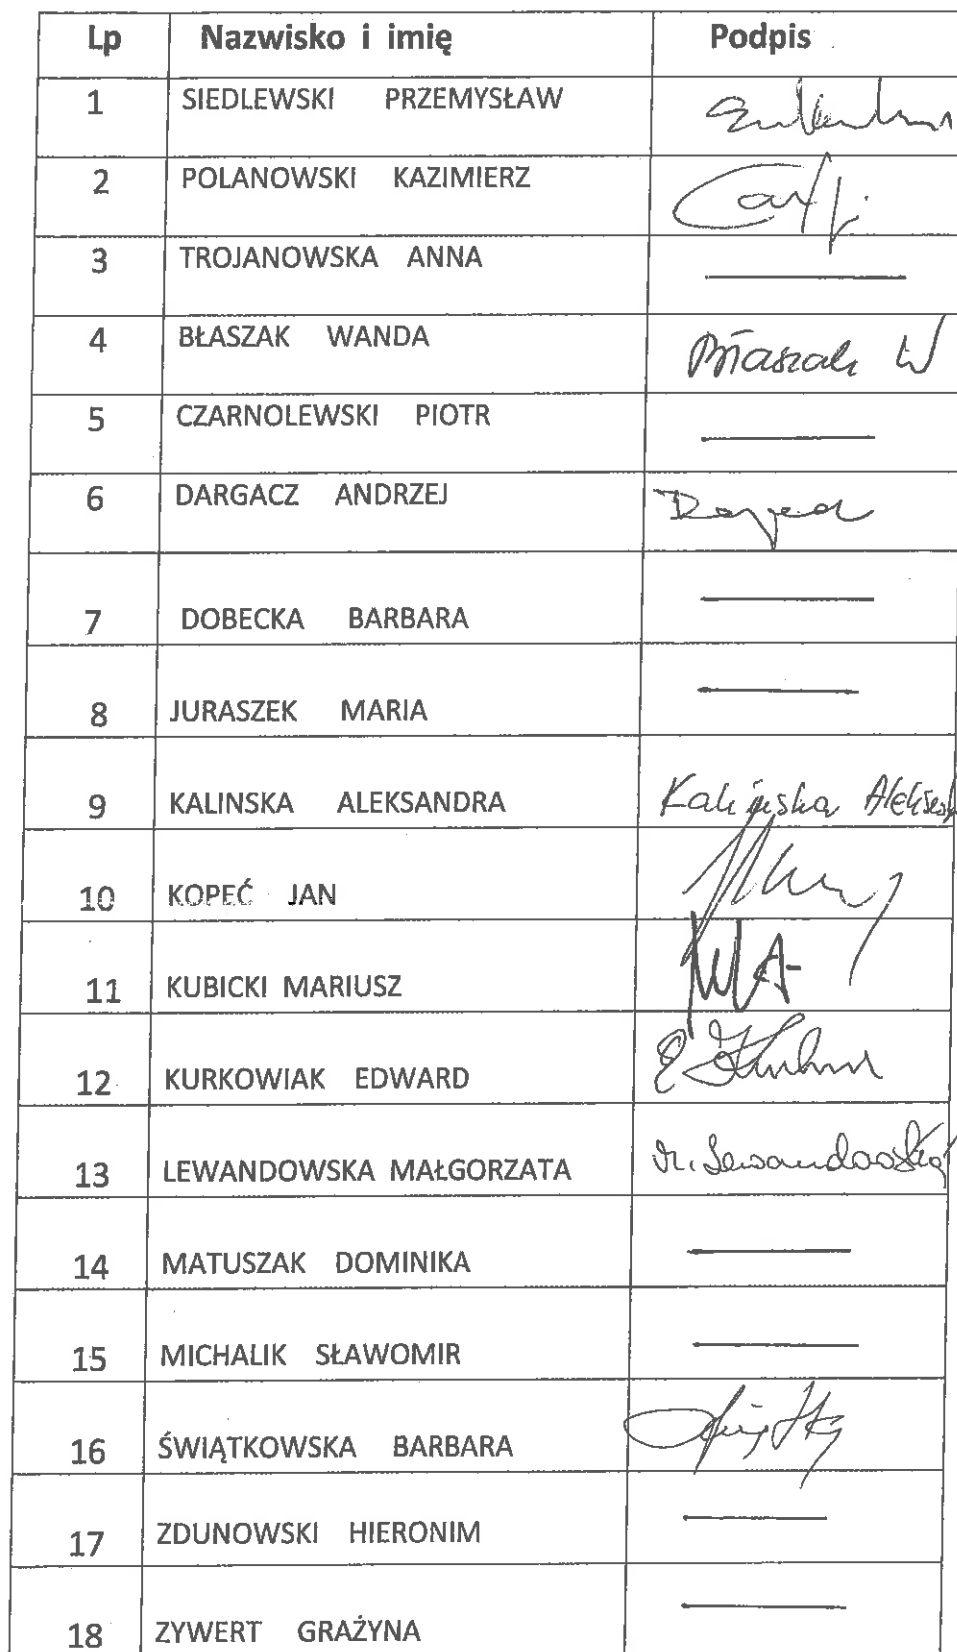 Lp Nazwisko i imię Podpis
1 SIEDLEWSKI PRZEMYSŁAW
2 POLANOWSKI KAZIMIERZ
3 TROJANOWSKA ANNA
4 BŁASZAK WANDA Błaszak W
5 CZARNOLEWSKI PIOTR
6 DARGACZ ANDRZEJ
7 DOBECKA BARBARA
8 JURASZEK MARIA
9 KALINSKA ALEKSANDRA Kalińska
10 KOPEĆ JAN
11 KUBICKI MARIUSZ
12 KURKOWIAK EDWARD
13 LEWANDOWSKA MAŁGORZATA M. Lewandowska
14 MATUSZAK DOMINIKA
15 MICHALIK SŁAWOMIR
16 ŚWIĄTKOWSKA BARBARA
17 ZDUNOWSKI HIERONIM
18 ZYWERT GRAŻYNA